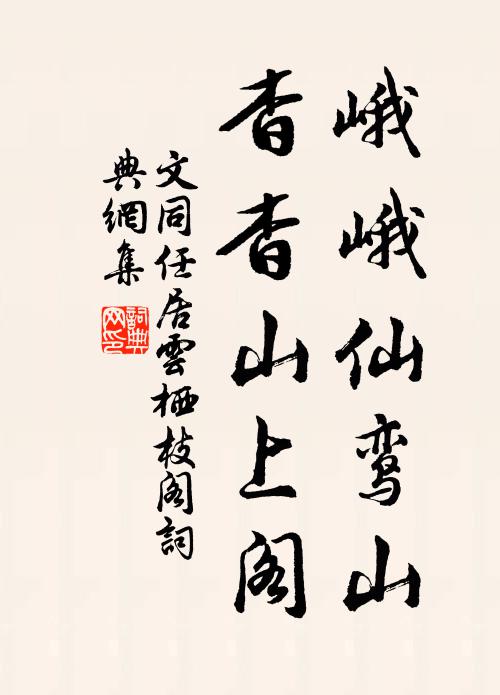 峨峨仙鸾山
杳杳山上阁
文同任居雲栖枝阁詞
典網集
詞典
网印